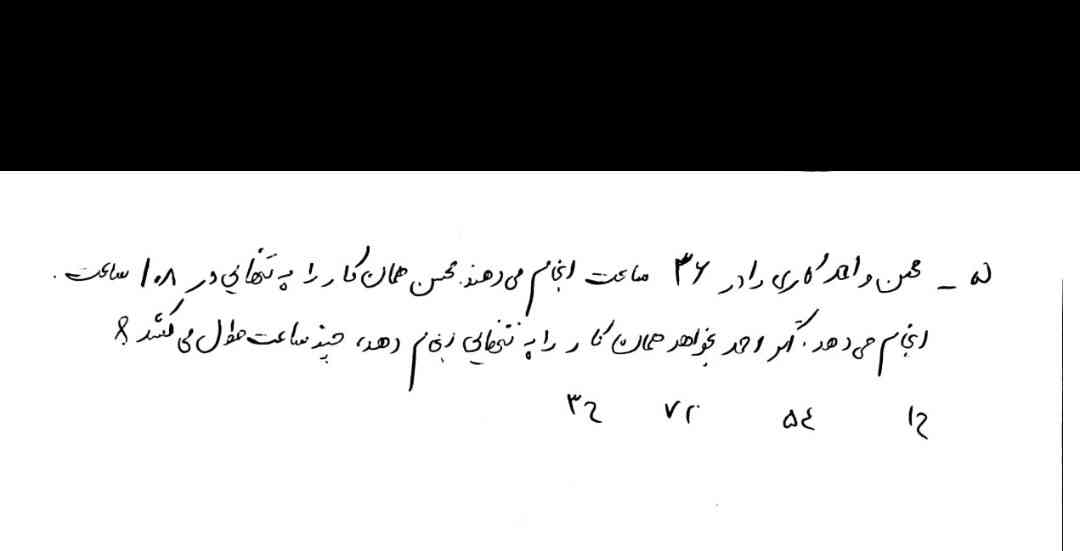 ۵ - محسن و احمد کاری را در ۳۶ ساعت انجام می‌دهند. محسن همان کار را به تنهایی در ۱۰۸ ساعت.
انجام می‌دهد. اگر احمد بخواهد همان کار را به تنهایی انجام دهد، چند ساعت طول می‌کشد؟
۵۴ ۷۲